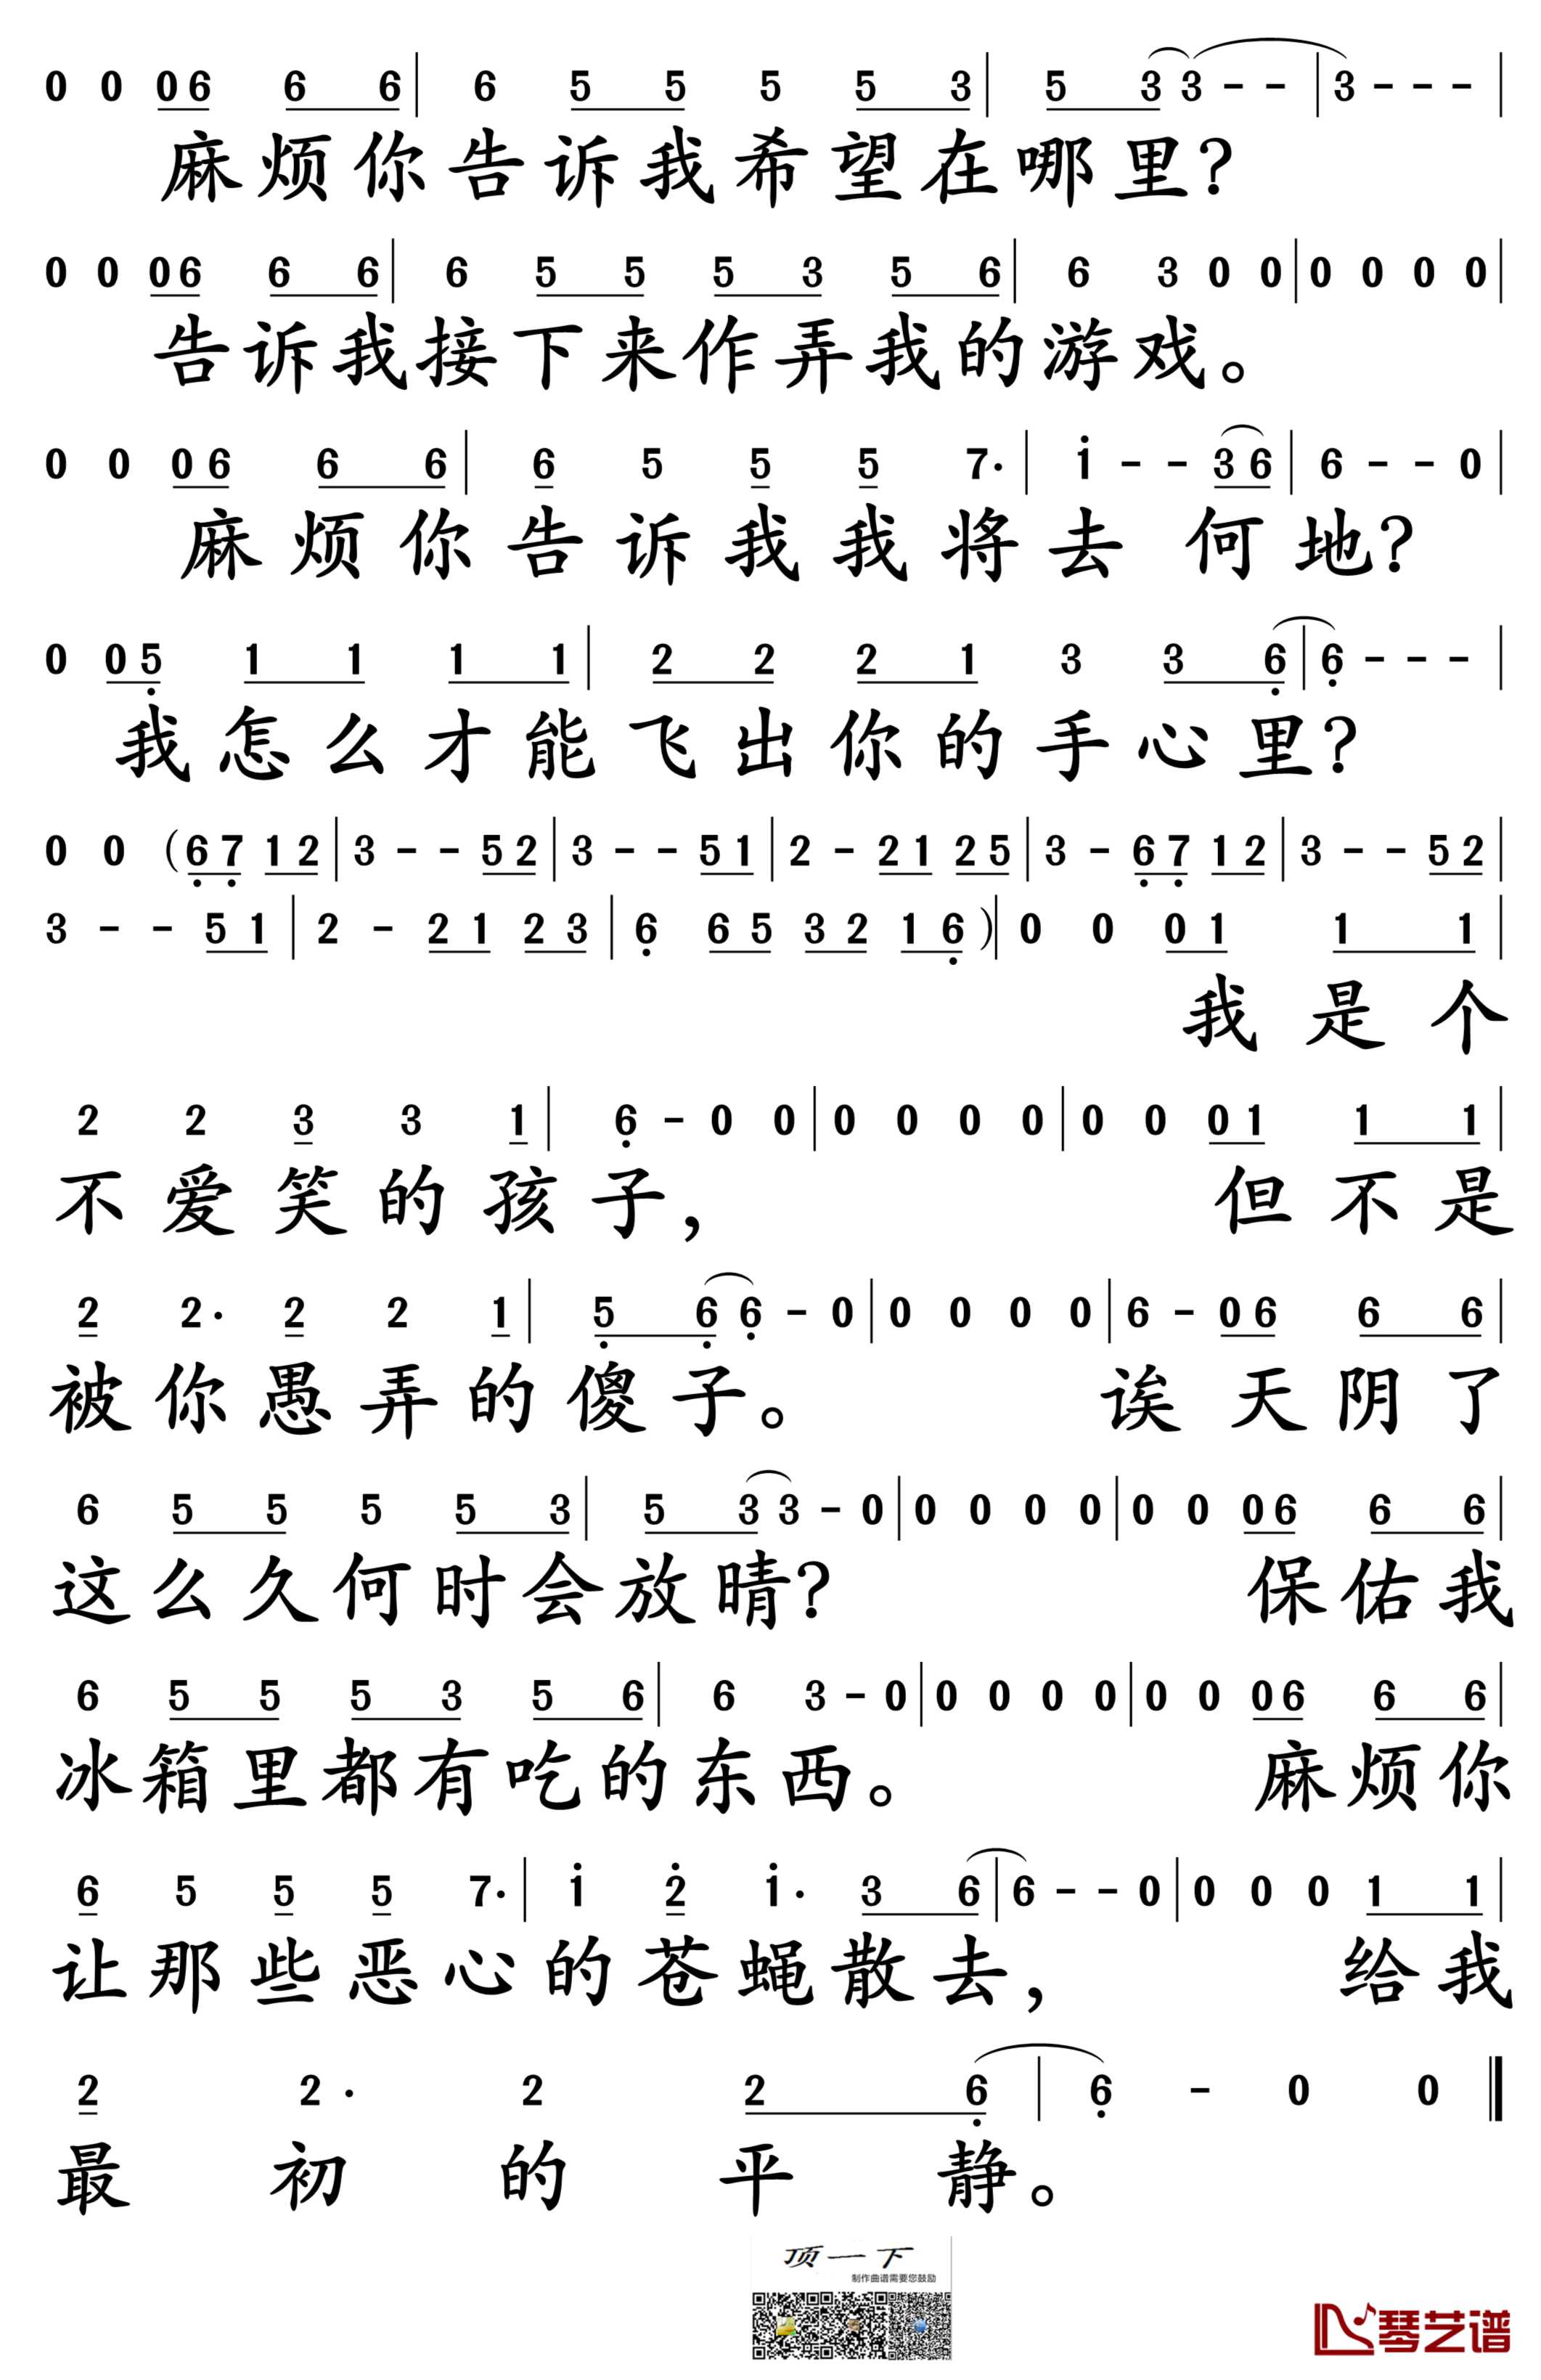 0 0 06 6 6 | 6 5 5 5 5 3 | 5 3 3 - - | 3 - - - |
麻烦你告诉我希望在哪里?
0 0 06 6 6 | 6 5 5 5 3 5 6 | 6 3 0 0 | 0 0 0 0 |
告诉我接下来作弄我的游戏。
0 0 06 6 6 | 6 5 5 5 7· | i - - 36 | 6 - - 0 |
麻烦你告诉我我将去何地?
0 05 1 1 1 1 | 2 2 2 1 3 3 6 | 6 - - - |
我怎么才能飞出你的手心里?
0 0 (67 12 | 3 - - 52 | 3 - - 51 | 2 - 21 25 | 3 - 67 12 | 3 - - 52 |
3 - - 51 | 2 - 21 23 | 6 65 32 16 ) | 0 0 01 1 1 |
我是个
2 2 3 3 1 | 6 - 0 0 | 0 0 0 0 | 0 0 01 1 1 |
不爱笑的孩子, 但不是
2 2· 2 2 1 | 5 6 6 - 0 | 0 0 0 0 | 6 - 06 6 6 |
被你愚弄的傻子。 诶天阴了
6 5 5 5 5 3 | 5 3 3 - 0 | 0 0 0 0 | 0 0 06 6 6 |
这么久何时会放晴? 保佑我
6 5 5 5 3 5 6 | 6 3 - 0 | 0 0 0 0 | 0 0 06 6 6 |
冰箱里都有吃的东西。 麻烦你
6 5 5 5 7· | i 2̇ i· 3 6 | 6 - - 0 | 0 0 0 1 1 |
让那些恶心的苍蝇散去, 给我
2 2· 2 2 6 | 6 - 0 0 ‖
最初的平静。
顶一下
制作曲谱需要您鼓励
琴艺谱